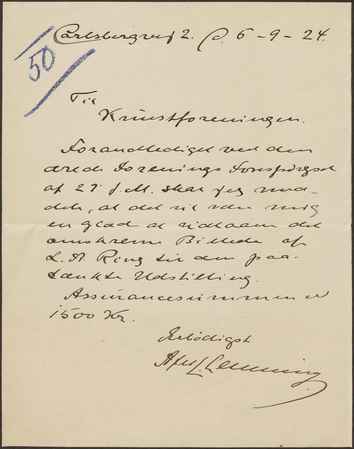 Carlsbergvej 2. d. 6-9-24.
50
Til
Kunstforeningen.
Foranlediget ved den
ærede Forenings Forespørgsel
af 27 f. M. skal jeg med-
dele, at det vil være mig
en Glæde at udlaane det
omskrevne Billede af
L. A. Ring til den paa-
tænkte Udstilling.
Assurancesummen er
1500 Kr.
Ærbødigst